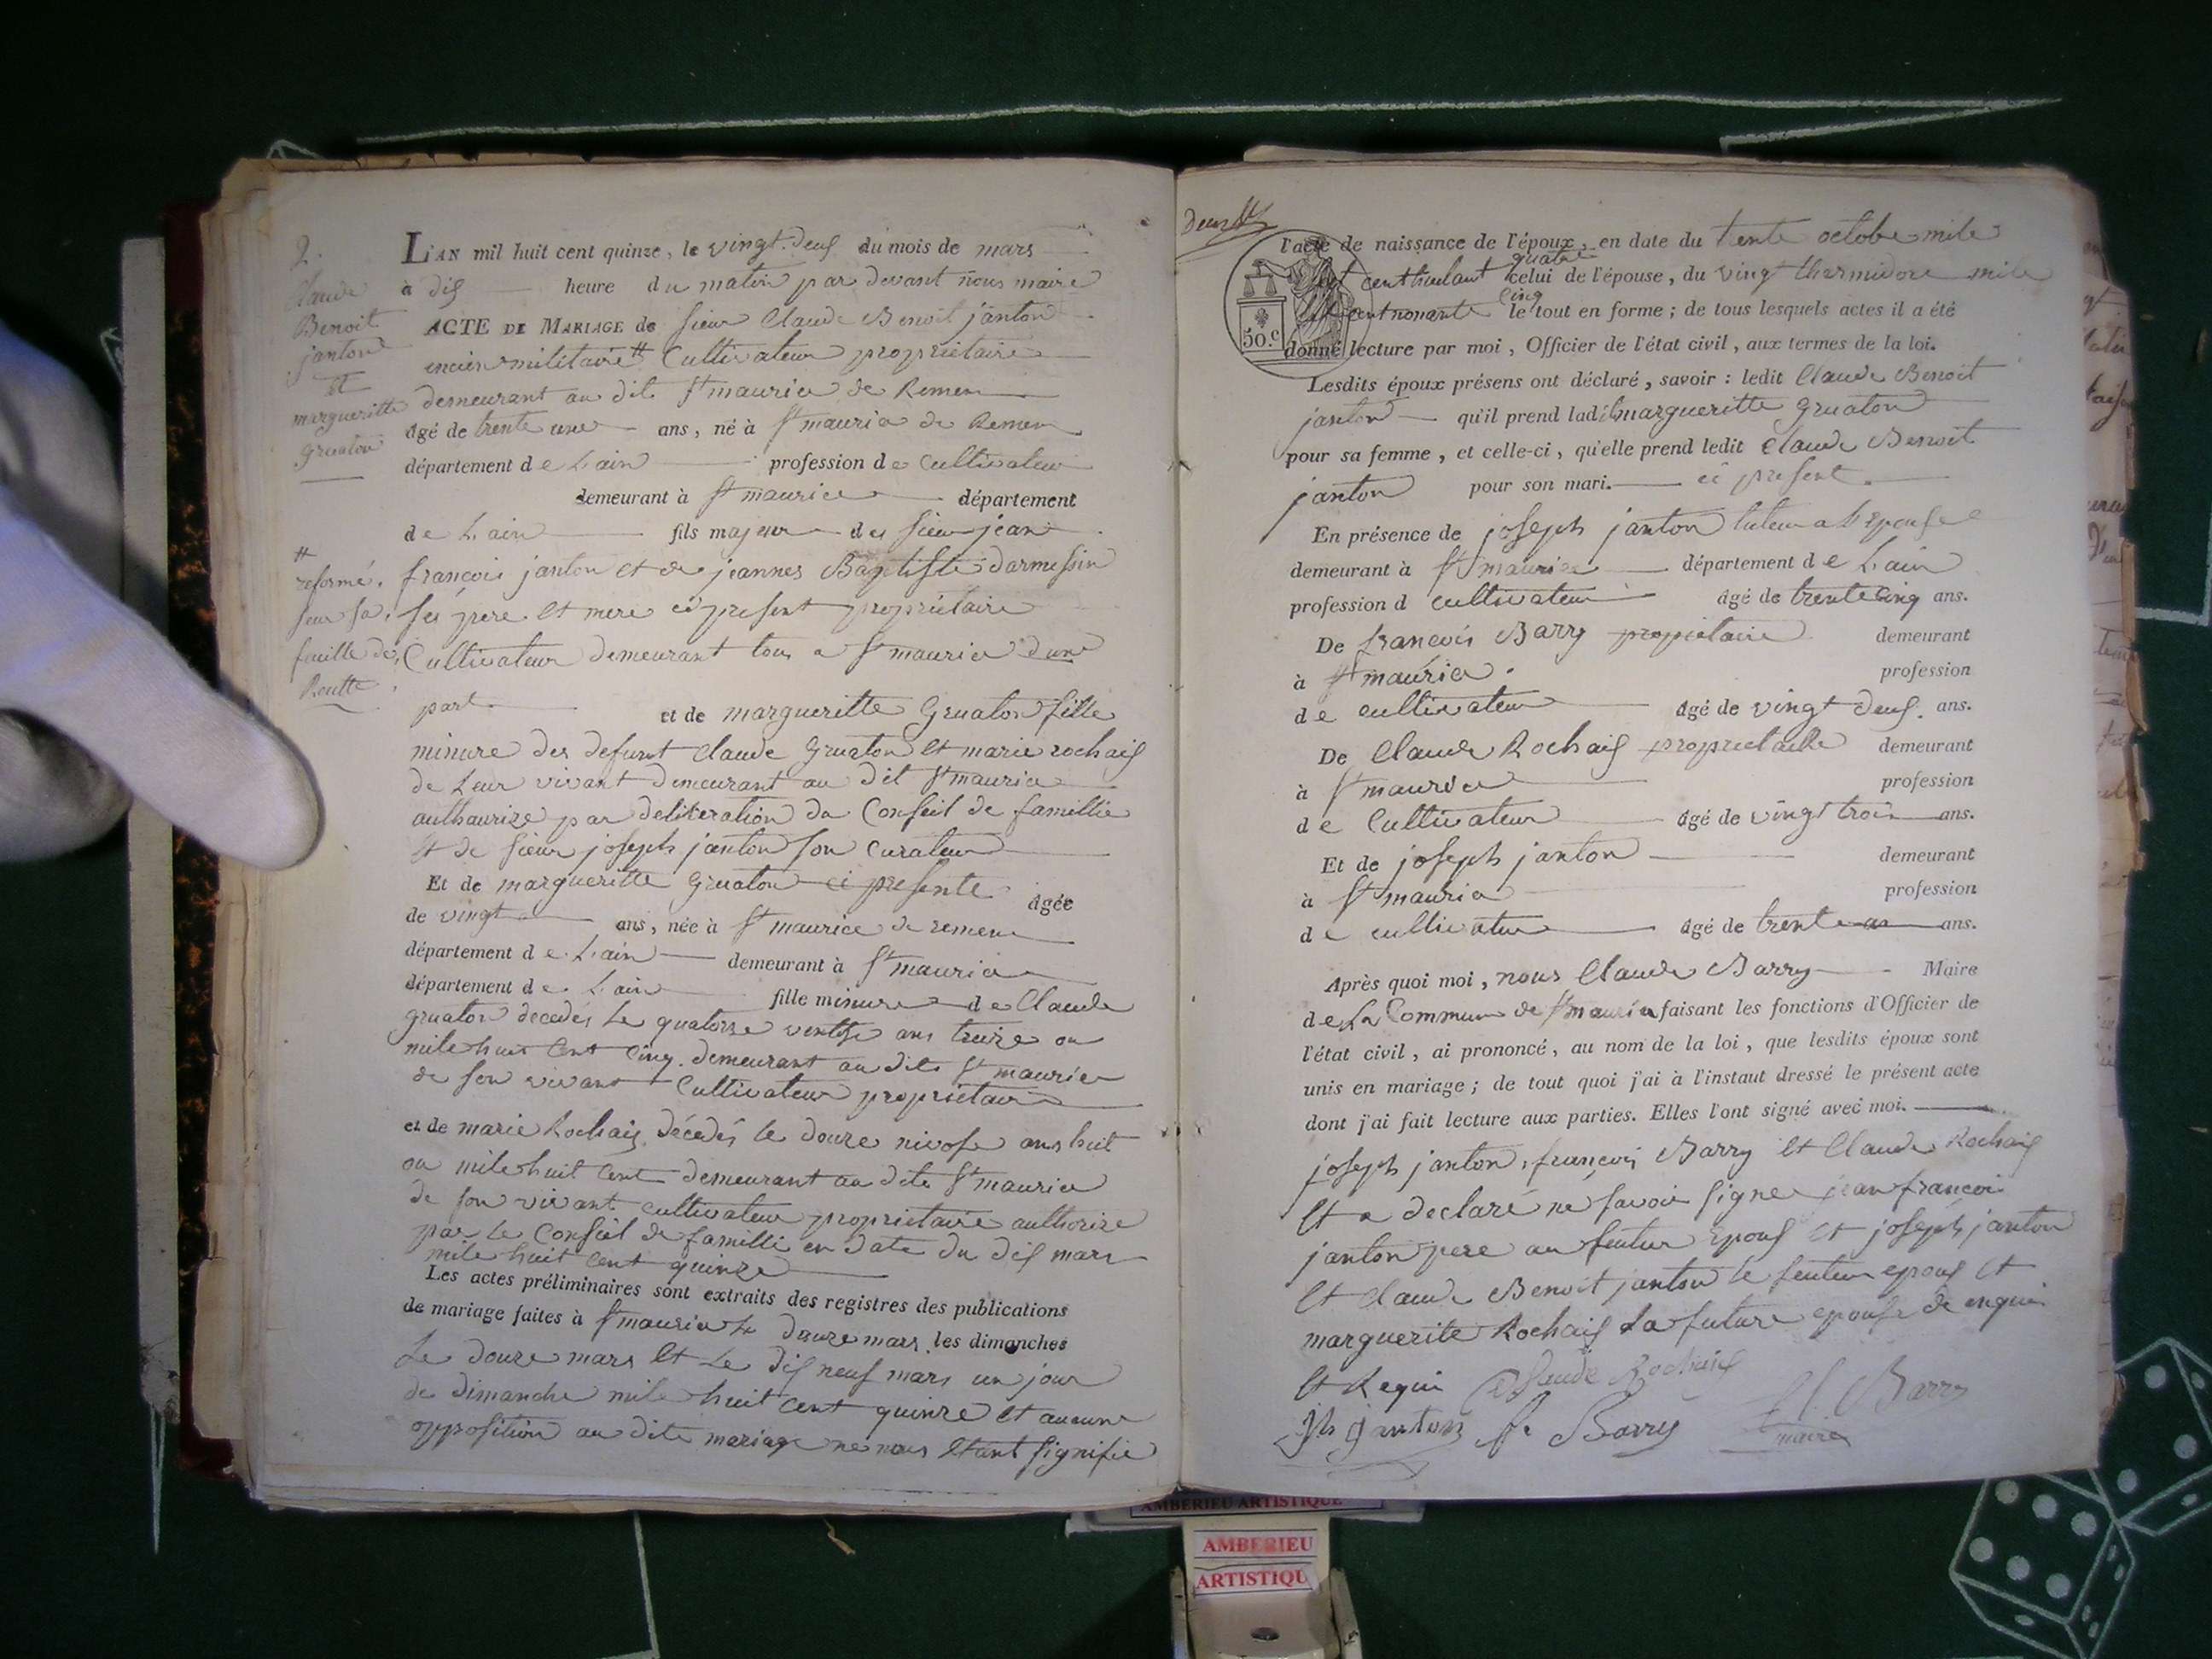 2.
Claude
Benoit
janton
et
margueritte
gruaton
L'AN mil huit cent quinze, le vingt deuf du mois de mars
à dis heure du matin par devant nous maire
ACTE DE MARIAGE de sieur Claude Benoit janton
encien militaire # Cultivateur propriétaire
demeurant au dit St maurice de Remen
âgé de trente une ans, né à St maurice de Remen
département de L'ain profession de Cultivateur
demeurant à St maurice département
de L'ain fils majeur des sieur jean
# reformé.
seur sa
feuille de
Routte
françois janton et de jeannes Baptiste darmessin
ses pere et mere ci present propriétaire
Cultivateur demeurant tous a St maurice d'une
part et de margueritte Gruaton fille
minure des defunt Claude Gruaton et marie rochaif
de Leur vivant demeurant au dit St maurice
authaurize par deliberation du Conseil de famillie
et de sieur joseph janton son Curateur
Et de margueritte Gruaton ci presente âgée
de vingt ans, née à St maurice de remen
département de L'ain demeurant à St maurice
département de L'ain fille minure de Claude
gruaton decedés Le quatorze ventose ans treize ou
mile huit Cent Cinq. demeurant au dite St maurice
de son vivant Cultivateur propriétaire
et de marie Rochaif décedés le douze nivose ans huit
ou mile huit Cent demeurant au dite St maurice
de son vivant cultivateur propriétaire authorize
par Le Conseil de famille en date du dis mars
mile huit Cent quinze
Les actes préliminaires sont extraits des registres des publications
de mariage faites à St maurice Le douze mars les dimanches
Le douze mars et Le dis neuf mars un jour
de dimanche mile huit Cent quinze et aucune
opposition au dite mariage ne nous étant signifie
50.c
l'acte de naissance de l'époux, en date du trente octobe mile
quatre
cent huitant celui de l'épouse, du vingt thermidore mile
cinq
cent nonante le tout en forme ; de tous lesquels actes il a été
donné lecture par moi, Officier de l'état civil, aux termes de la loi.
Lesdits époux présens ont déclaré, savoir : ledit Claude Benoit
janton qu'il prend ladite margueritte Gruaton
pour sa femme, et celle-ci, qu'elle prend ledit Claude Benoit
janton pour son mari. ci present.
En présence de joseph janton tuteur a L'epouse
demeurant à St maurice département de L'ain
profession d cultivateur âgé de trente cinq ans.
De françois Barry propriétaire demeurant
à St maurice. profession
de cultivateur âgé de vingt deuf. ans.
De Claude Rochaif propriétaire demeurant
à St maurice profession
de Cultivateur âgé de vingt trois ans.
Et de joseph janton demeurant
à St maurice profession
de cultivateur âgé de trente ans.
Après quoi moi, nous Claude Barry Maire
de La Commune de St maurice faisant les fonctions d'Officier de
l'état civil, ai prononcé, au nom de la loi, que lesdits époux sont
unis en mariage ; de tout quoi j'ai à l'instaut dressé le présent acte
dont j'ai fait lecture aux parties. Elles l'ont signé avec moi.
joseph janton, françois Barry et Claude Rochaif
et a declaré ne savoir signer jean françois
janton pere au feutur Epouf et joseph janton
et Claude Benoit janton le feuteur epouf et
marguerite Rochaif La future epouse de enquis
et Requi Claude Rochaif
jh janton f. Barry Cl. Barry
maire
AMBERIEU ARTISTIQUE
AMBERIEU
ARTISTIQU